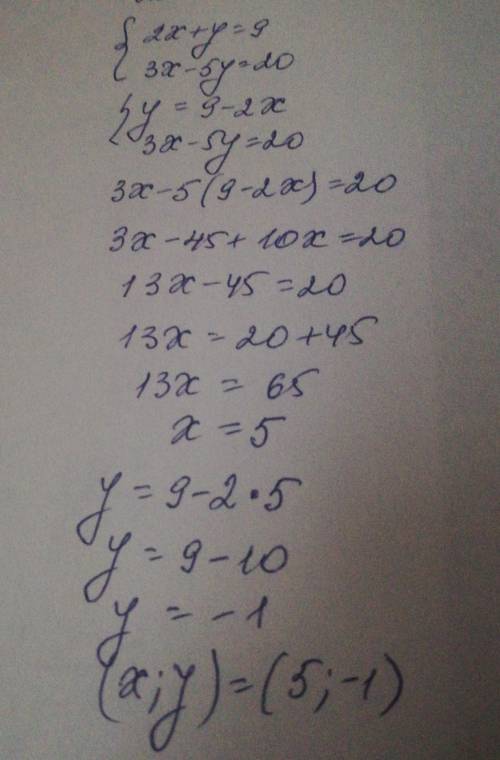 { 2x+y=9
3x-5y=20
{ y = 9-2x
3x-5y=20
3x-5(9-2x)=20
3x-45+10x=20
13x-45=20
13x=20+45
13x = 65
x = 5
y = 9-2·5
y = 9-10
y = -1
(x;y)=(5;-1)